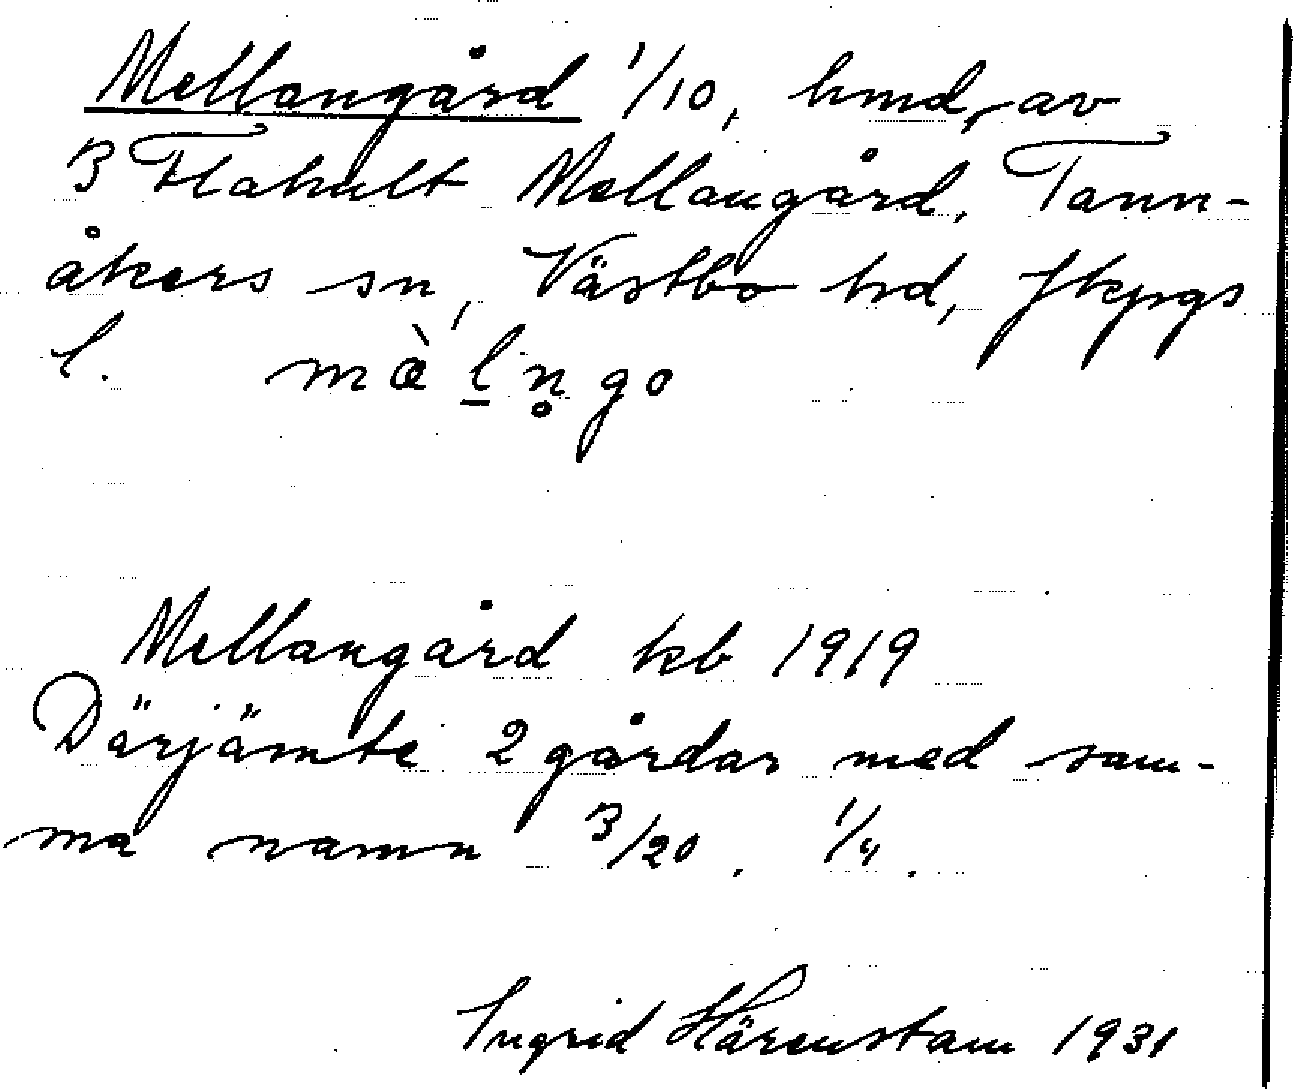 Mellangård 1/10, hmd, av
3 Flahult Mellangård, Tann-
åkers sn, Västbo hd, Jkpgs
l. mæ̀l̠n̥go
Mellangård kb 1919
Därjämte 2 gårdar med sam-
ma namn 3/20, 1/4.
Ingrid Härenstam 1931